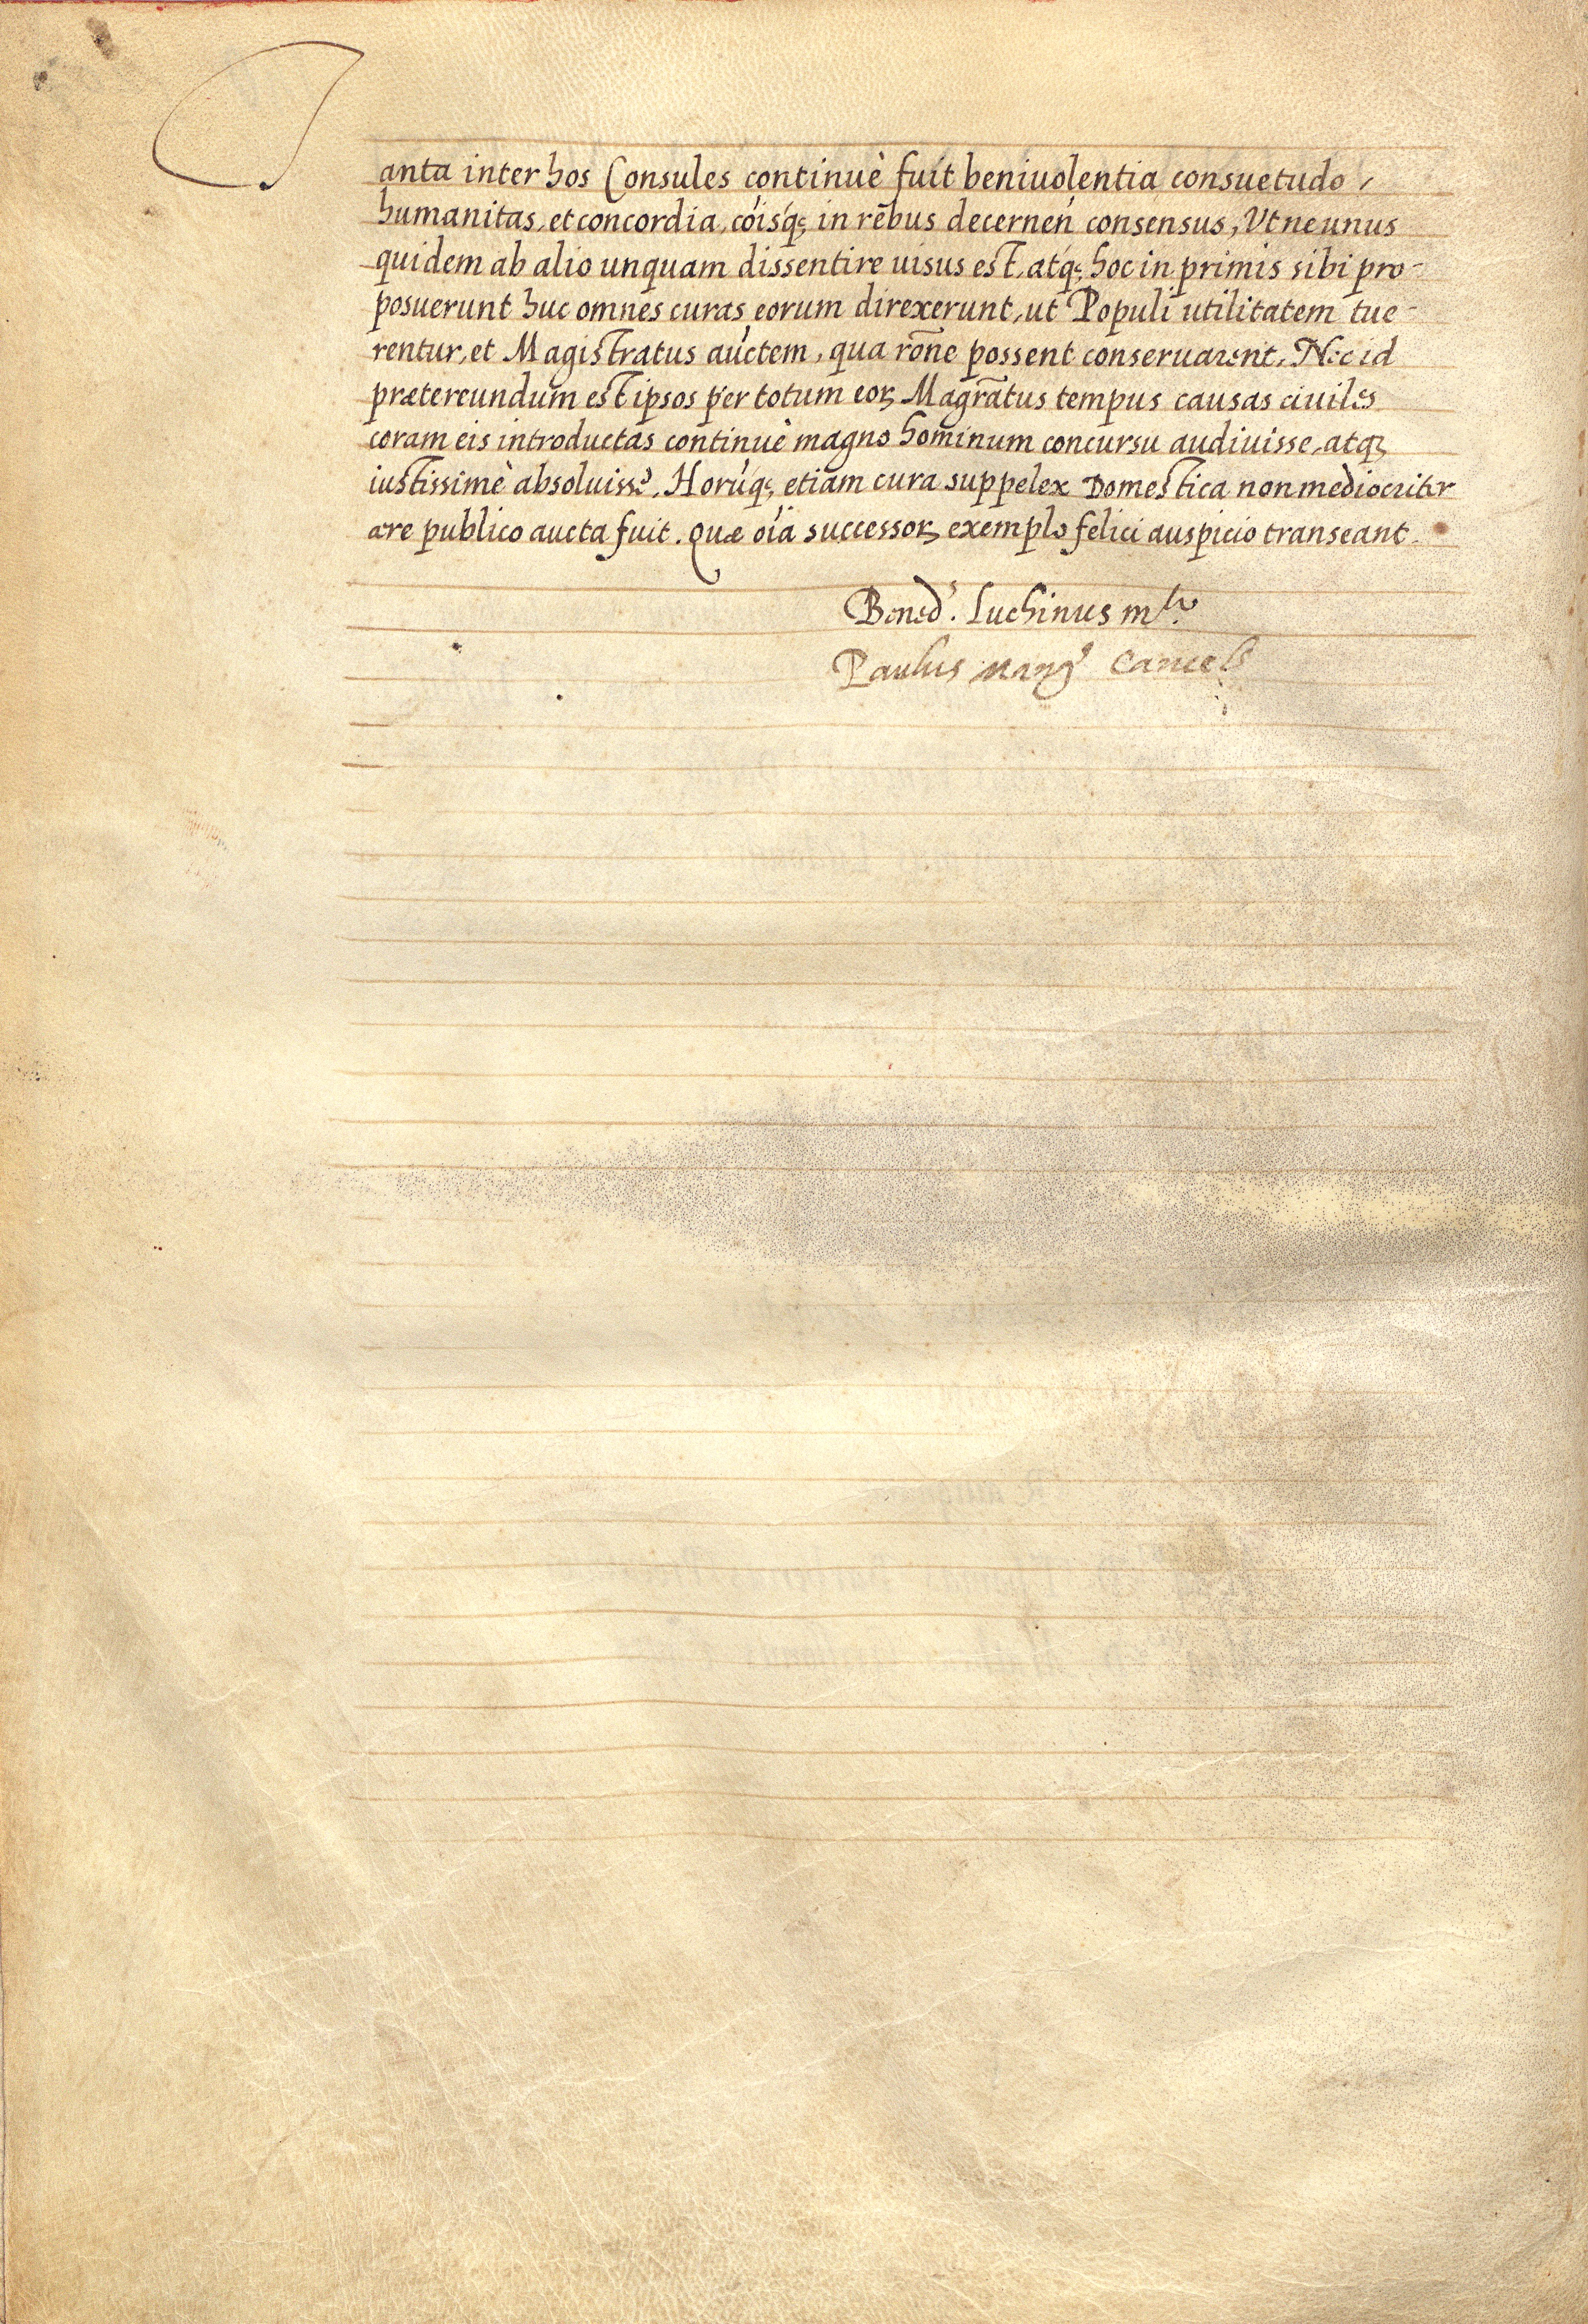 Tanta inter hos Consules continuè fuit beniuolentia consuetudo,
humanitas, et concordia, cõisq; in rẽbus decerneñ consensus, Ut ne unus
quidem ab alio unquam dissentire uisus est, atq; hoc in primis sibi pro-
posuerunt huc omnes curas eorum direxerunt, ut Populi utilitatem tue-
rentur, et Magistratus auctem, qua rõne possent conseruarent. Nec id
prætereundum est ipsos per totum eoꝝ Magrãtus tempus causas ciuiles
coram eis introductas continuè magno hominum concursu audiuisse, atq;
iustissimè absoluisse. Horũq; etiam cura suppelex Domestica non mediocriter
ære publico aucta fuit. Quæ oĩa successoꝝ exemplo felici auspicio transeant.
Bened.s Luchinus
Paulus